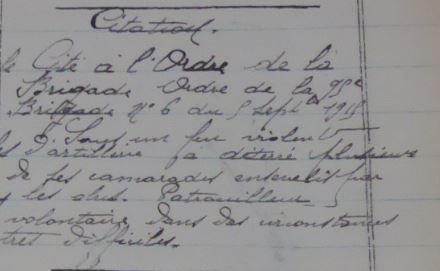 Citation.
Cité à l'Ordre de la
Brigade Ordre de la 75e
Brigade No 6 du 5 Septbre 1915
Sous un feu violent
d'artillerie a déterré plusieurs
de ses camarades ensevelis par
les obus. Patrouilleur
volontaire dans des circonstances
très difficiles.